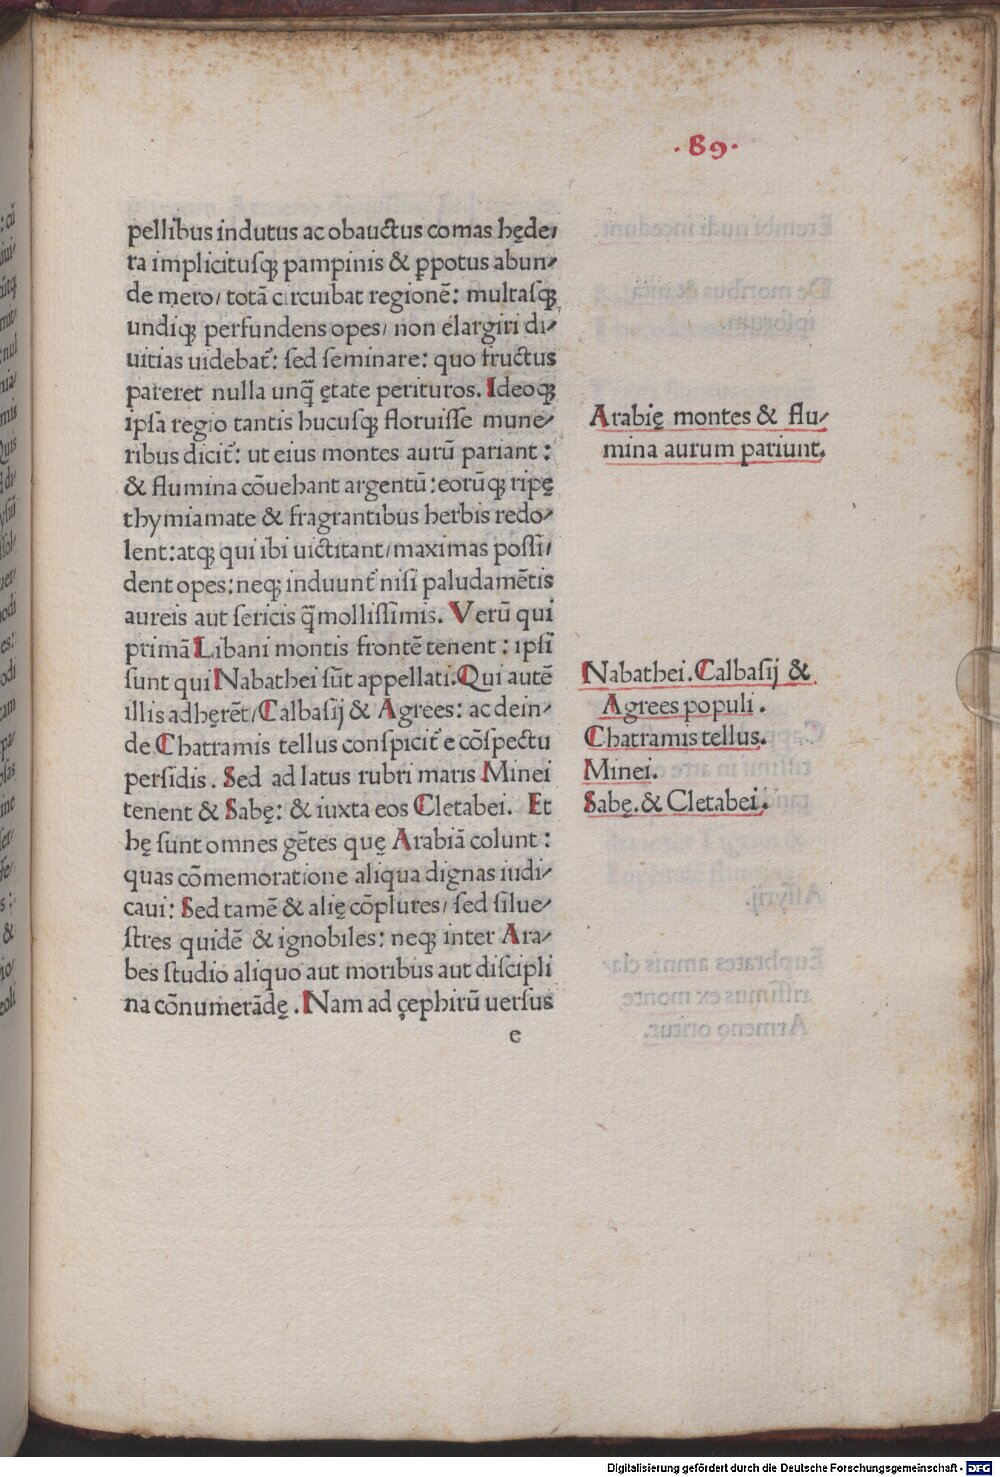 ·89·
pellibus indutus ac obauctus comas hęde/
ra implicitusqꝫ pampinis & ꝓpotus abun/
de mero/ totā circuibat regionē: multasqꝫ
undiqꝫ perfundens opes/ non elargiri di/
uitias uidebat᷑: sed seminare: quo fructus
pareret nulla unq̄ ętate perituros. Ideoqꝫ
ipsa regio tantis hucusqꝫ floruisse mune/
ribus dicit᷑: ut eius montes aurū pariant:
& flumina cōuehant argentū: eorūqꝫ ripę
thymiamate & fragrantibus herbis redo/
lent: atqꝫ qui ibi uictitant/ maximas possi/
dent opes: neqꝫ induunt᷑ nisi paludamētis
aureis aut sericis q̄mollissimis. Verū qui
primā Libani montis frontē tenent: ipsi
sunt qui Nabathei sūt appellati. Qui autē
illis adhęrēt/ Calbasij & Agrees: ac dein/
de Chatramis tellus conspicit᷑ e cōspectu
persidis. Sed ad latus rubri maris Minei
tenent & Sabę: & iuxta eos Cletabei. Et
hę sunt omnes gētes quę Arabiā colunt:
quas cōmemoratione aliqua dignas iudi/
caui: Sed tamē & alię cōplures/ sed silue/
stres quidē & ignobiles: neqꝫ inter Ara/
bes studio aliquo aut moribus aut discipli
na cōnumerādę. Nam ad çephirū uersus
e
Arabię montes & flu/
mina aurum pariunt.
Nabathei. Calbasij &
Agrees populi.
Chatramis tellus.
Minei.
Sabę. & Cletabei.
Digitalisierung gefördert durch die Deutsche Forschungsgemeinschaft - DFG